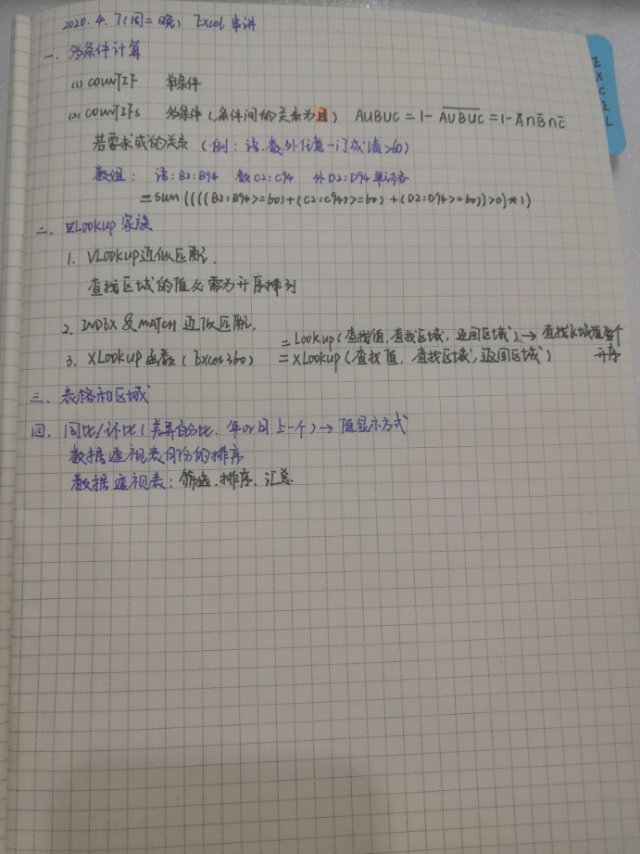 2020.4.7(周二晚) Excel 串讲
EXCEL
一、多条件计算
(1) COUNTIF 单条件
(2) COUNTIFs 多条件(条件间的关系为且) AUBUC = 1- \overline{AUBUC} = 1- \overline{A}∩\overline{B}∩\overline{C}
若要求或的关系(例:语.数.外任意一门成绩>60)
数组: 语:B2:B94 数C2:C94 外D2:D94
=sum((((B2:B94>=60)+(C2:C94>=60)+(D2:D94>=60))>0)*1)
二、LOOKup 家族
1. VLookup近似匹配.
查找区域的值必需为升序排列
2. INDEX 及 MATCH 近似匹配.
=Lookup(查找值,查找区域,返回区域)→查找区域值
升序
3. XLookup函数(Excel360) =XLookup(查找值,查找区域,返回区域)
三、表格和区域
四、同比/环比(差异百分比.年or月 上一个)→值显示方式
数据透视表月份的排序
数据透视表:筛选.排序.汇总